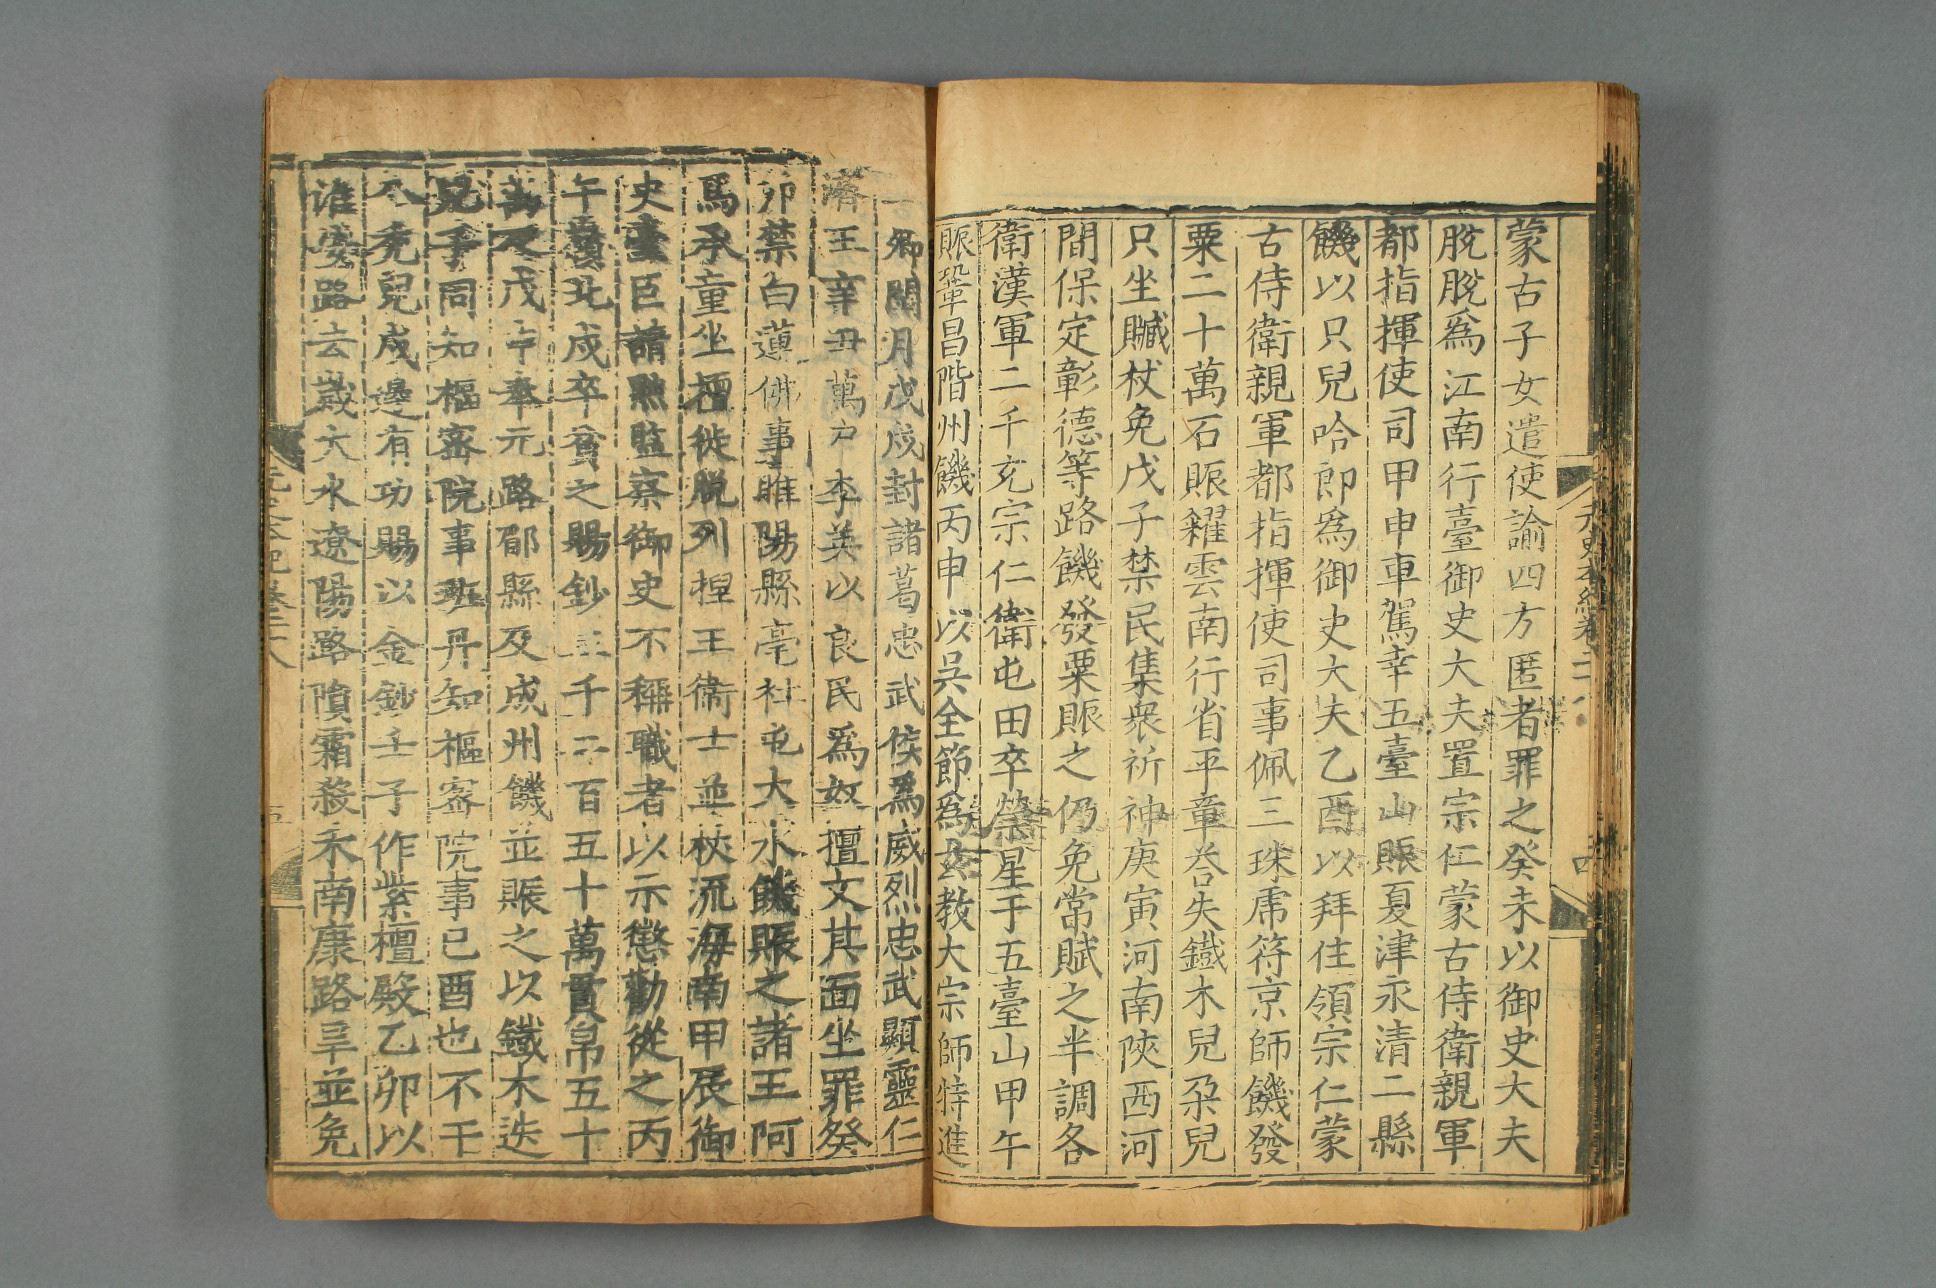 蒙古子女遣使諭四方匿者罪之癸未以御史大夫
脫脫爲江南行臺御史大夫置宗仁蒙古侍衛親軍
都指揮使司甲申車駕幸五臺山賑夏津永清二縣
饑以只兒哈郎爲御史大夫乙酉以拜住領宗仁蒙
古侍衛親軍都指揮使司事佩三珠虎符京師饑發
粟二十萬石賑糶雲南行省平章荅失鐵木兒朶兒
只坐贓杖免戊子禁民集衆祈神庚寅河南陝西河
間保定彰德等路饑發粟賑之仍免常賦之半調各
衛漢軍二千充宗仁衛屯田卒禜星于五臺山甲午
賑鞏昌階州饑丙申以吳全節爲玄教大宗師特進
卿閏月戊戌封諸葛忠武侯爲威烈忠武顯靈仁
濟王辛丑萬戶李英以良民爲奴擅文其面坐罪癸
卯禁白蓮佛事睢陽縣亳社屯大水饑賑之諸王阿
馬承童坐擅徙脫列捏王衛士並杖流海南甲辰御
史臺臣請黜監察御史不稱職者以示懲勸從之丙
午賽北戍卒貧乏賜鈔三千二百五十萬貫帛五十
萬疋戊午奉元路郿縣及成州饑並賑之以鐵木迭
兒子同知樞密院事班丹知樞密院事己酉也不干
八禿兒戍邊有功賜以金鈔壬子作紫檀殿乙卯以
淮安路去歲大水遼陽路隕霜殺禾南康路旱並免
元史本紀卷二十八